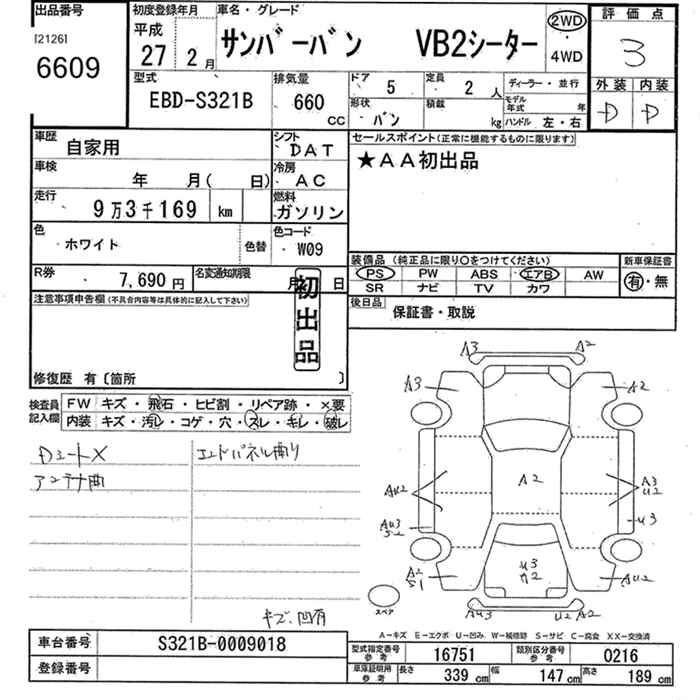 出品番号
[2126]
6609
初度登録年月
平成
27 2月
車名・グレード
サンバーバン VB2シーター
2WD
4WD
評価点
3
外装 内装
D D
型式
EBD-S321B
排気量
660
CC
ドア 5
定員 2人
ディーラー・並行
形状 バン
積載 kg
モデル年式 年
ハンドル 左・右
車歴 自家用
シフト DAT
セールスポイント(正常に機能するものに限ります)
★AA初出品
車検 年 月( 日)
冷房 AC
走行 9万3千169 km
燃料 ガソリン
色 ホワイト 色替
色コード W09
装備品(純正品に限り○をつけてください)
PS PW ABS エアB AW
SR ナビ TV カワ
新車保証書
有・無
R券 7,690円
名変通知期限 月 日
後日品 保証書・取説
注意事項申告欄(不具合内容等は具体的に記入して下さい)
初出品
修復歴 有〔箇所 〕
検査員記入欄
FW キズ・飛石・ヒビ割・リペア跡・×要
内装 キズ・汚レ・コゲ・穴・スレ・キレ・破レ
Dシートメ
エンドパネル曲り
アンテナ曲
キズ、凹有
A3 A2
A3 A2
A2
AU2
A3
U2
AU3
S2
U3
A2
S1
U3
A2
AU2
AU3 U2 A2
スペア
A-キズ E-エクボ U-凹み W-補修跡 S-サビ C-腐食 XX-交換済
車台番号 S321B-0009018
登録番号
型式指定番号参考 16751
類別区分番号参考 0216
車庫証明用参考 長さ 339cm 幅 147cm 高さ 189cm